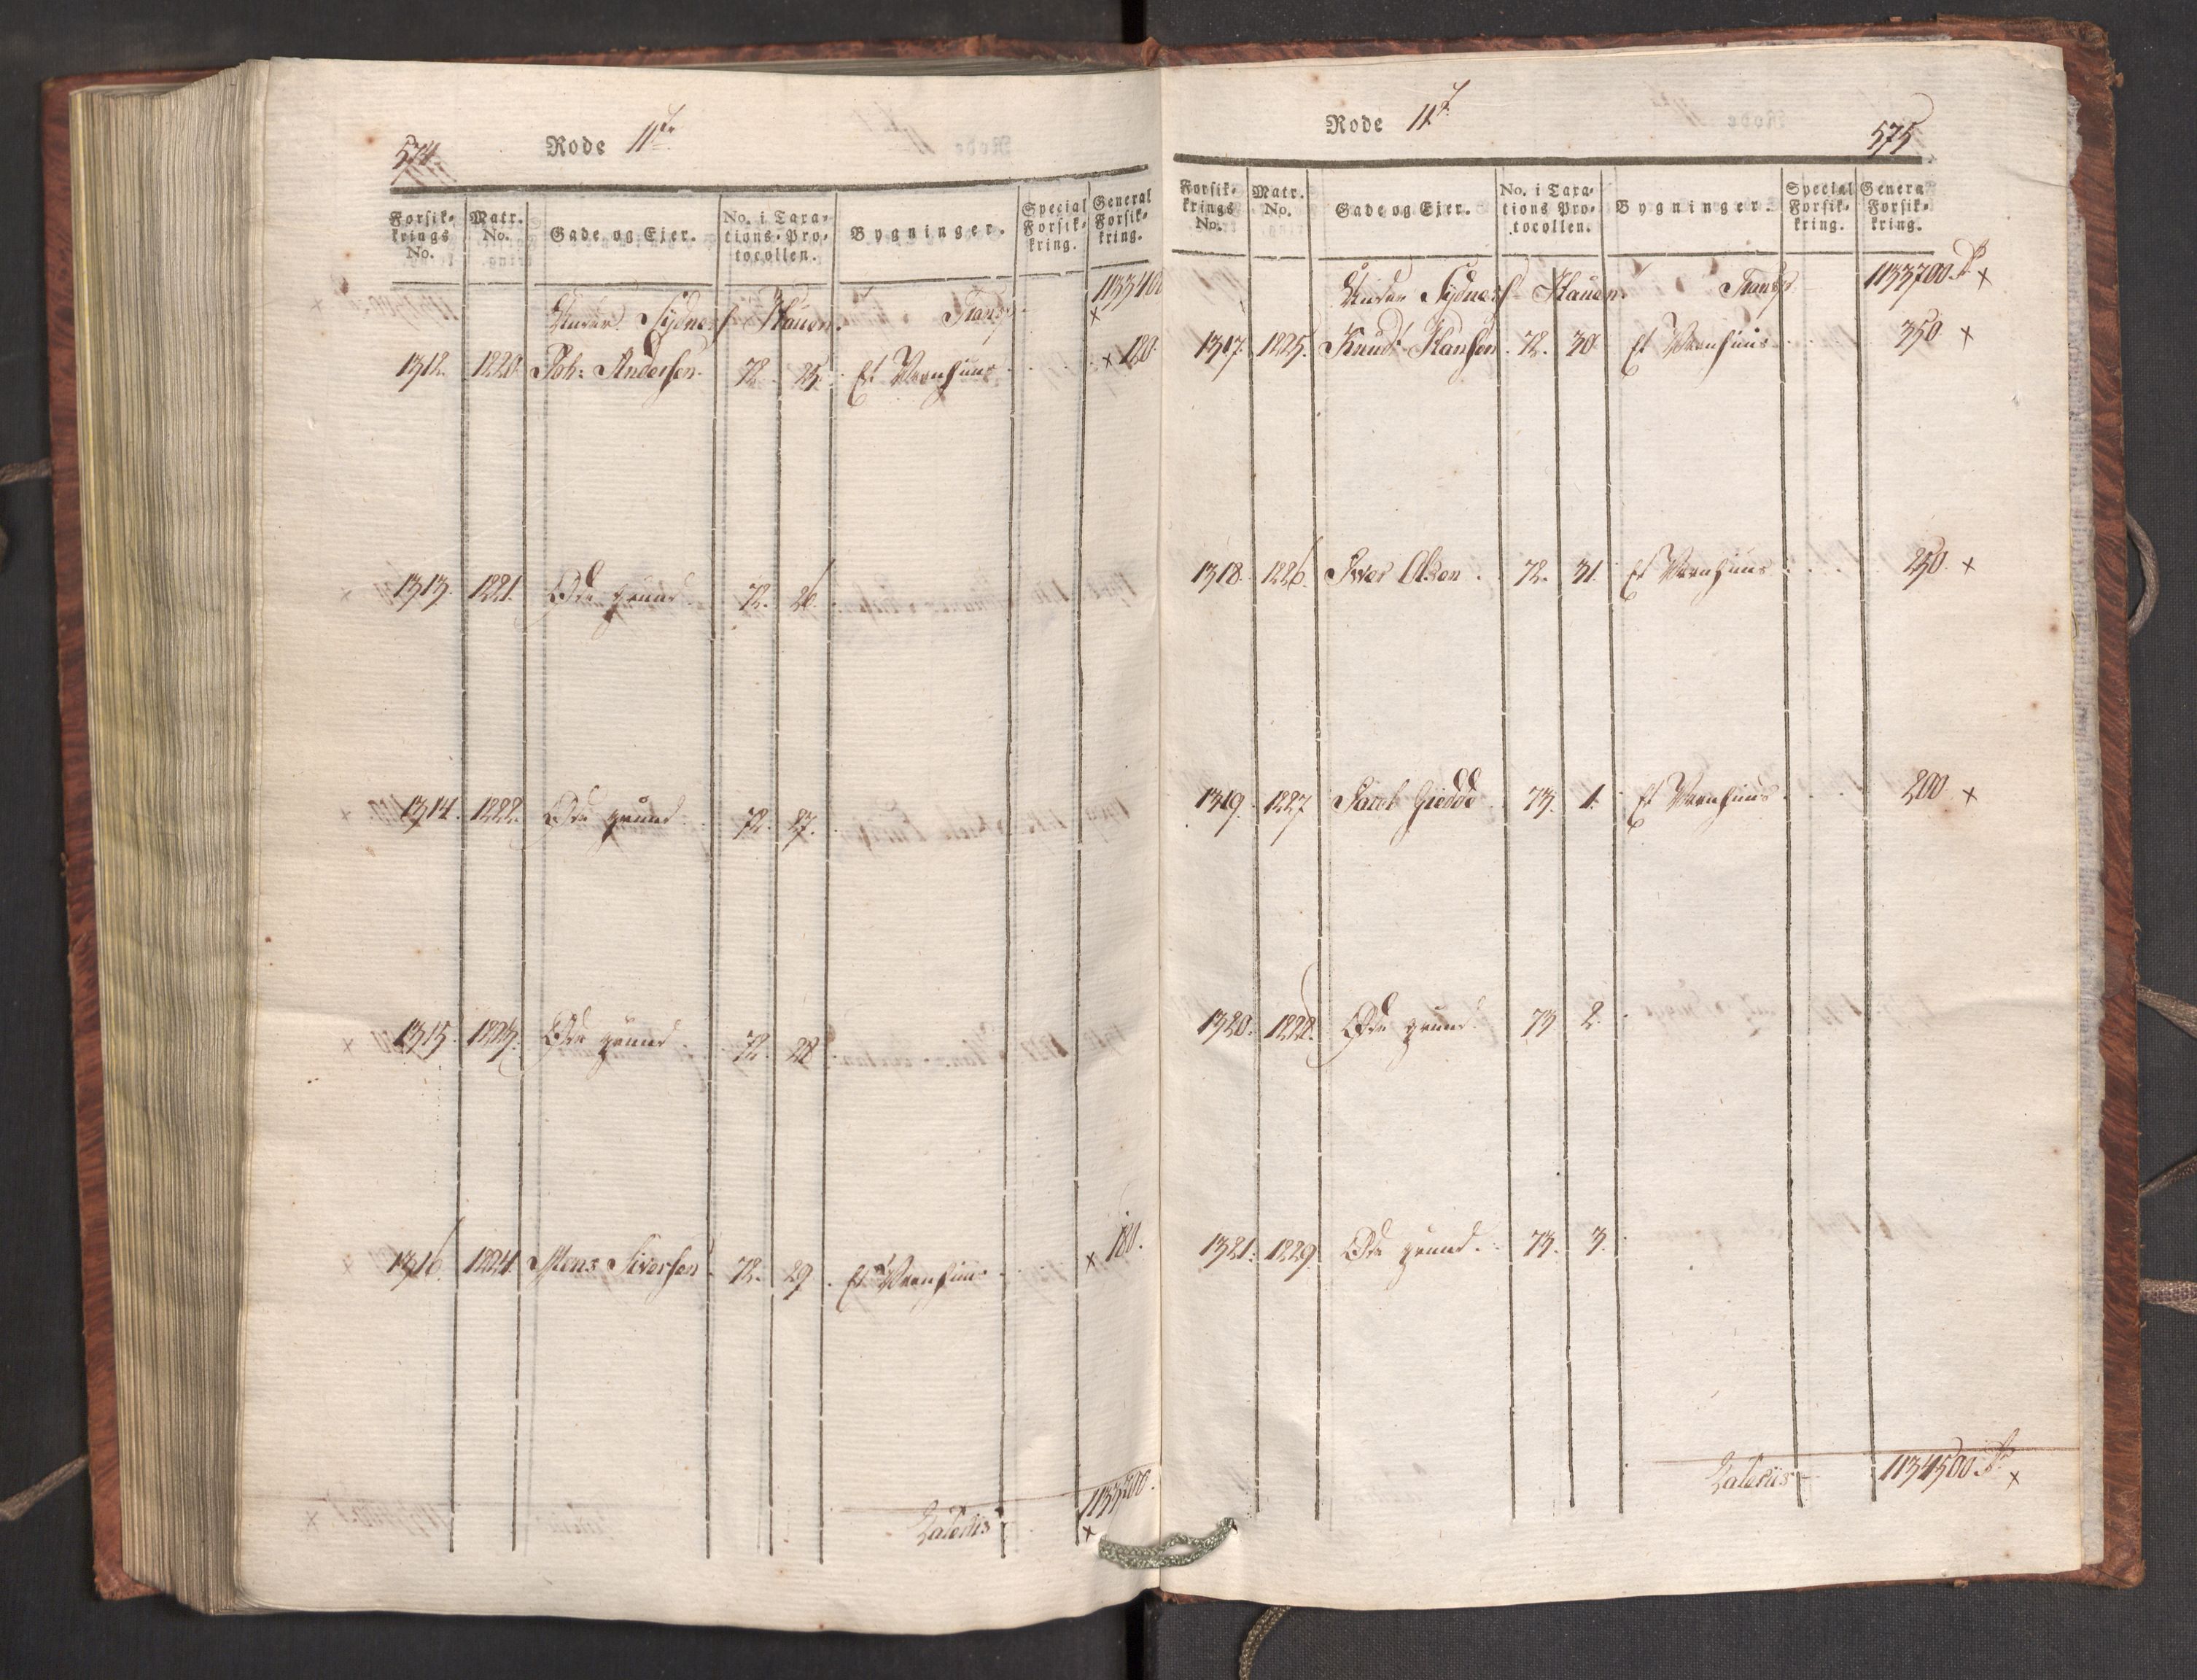 574.
Rode 11te
Forsik-
krings
No.
Matr.
No.
Gade og Ejer.
No. i Taxa-
tions-Pro-
tocollen.
Bygninger.
Special
Forsik-
kring.
General
Forsik-
kring.
Under Sydnes Hauen. Transp. 1133400 x
1312. 1220 Joh: Andersen. 72. 25. Et Vaanhuus x 120.
1313. 1221. Øde grund. 72. 26.
1314. 1222. Øde grund 72. 27.
1315. 1223. Øde grund. 72. 28
1316. 1224. Mons Siversen 72. 29. Et Vaanhuus x 180.
Lateriis 1133700. x
Rode 11te
575
Forsik-
krings
No.
Matr.
No.
Gade og Ejer.
No. i Taxa-
tions Pro-
tocollen.
Bygninger.
Special
Forsik-
kring.
General
Forsik-
kring.
Under Sydnes Hauen. Transp. 1133700 x
1317. 1225. Knud Hansen. 72. 30 Et Vaanhuus 350 x
1318. 1226. Iver Olsen. 72. 31. Et Vaanhuus 250. x
1319. 1227 Jacob Giedde 73. 1. Et Vaanhuus 200 x
1320. 1228. Øde grund. 73 2.
1321. 1229. Øde grund. 73. 3.
Lateriis 1134500 x